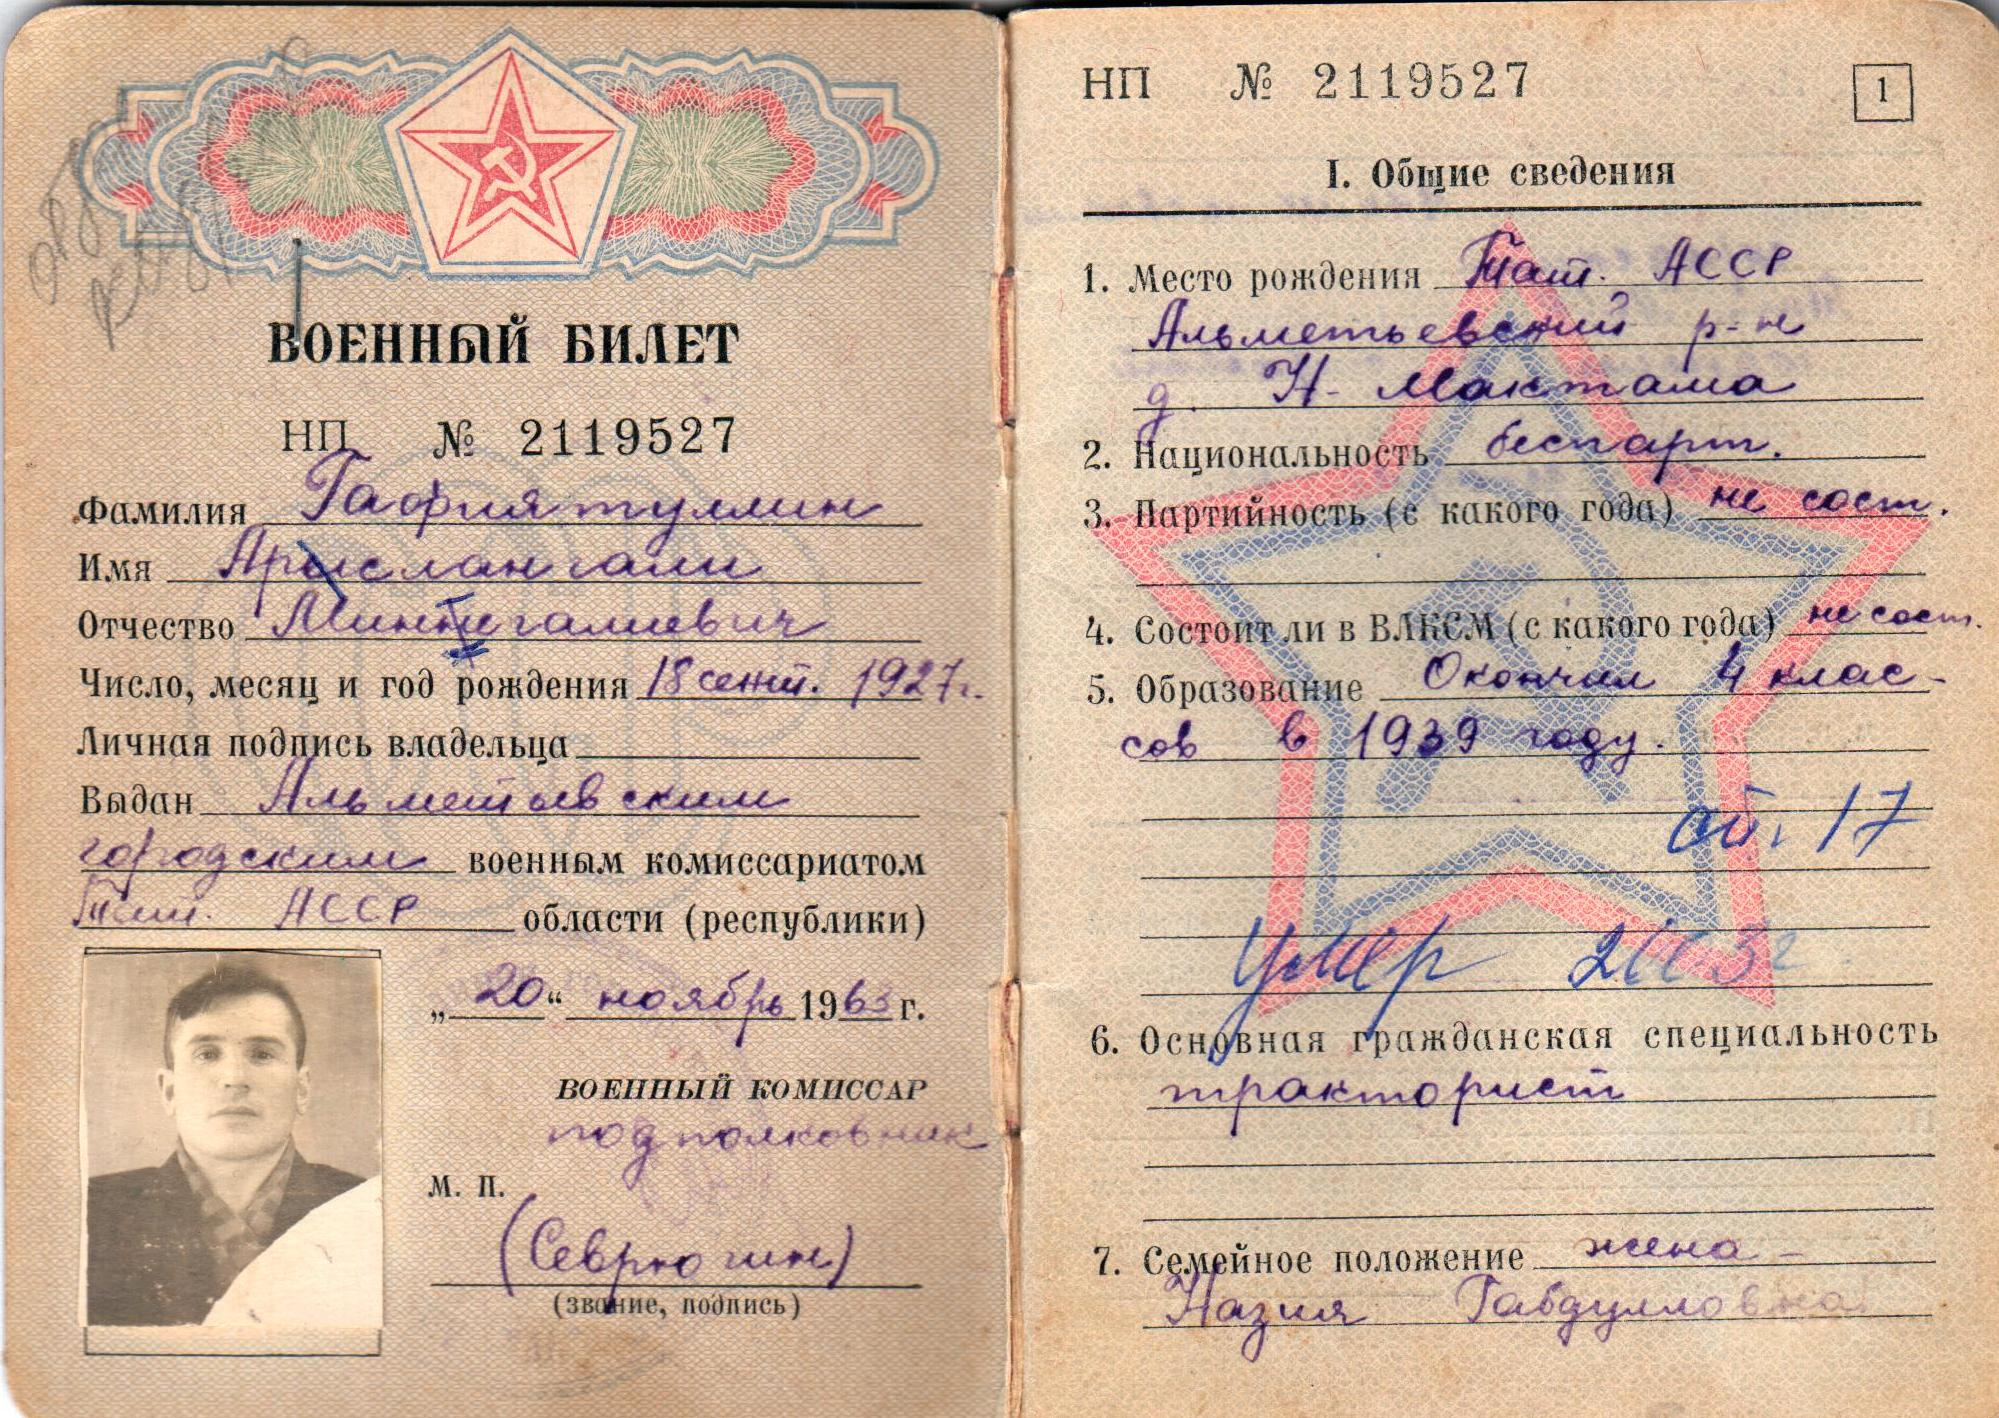 ВОЕННЫЙ БИЛЕТ
НП № 2119527
Фамилия Гафиятуллин
Имя Арыслангали
Отчество Миннигалиевич
Число, месяц и год рождения 18 сент. 1927г.
Личная подпись владельца
Выдан Альметьевским
городским военным комиссариатом
Тат. АССР области (республики)
„20“ ноябрь 1963 г.
ВОЕННЫЙ КОМИССАР
подполковник
М. П.
(Севрюгин)
(звание, подпись)
НП № 2119527
1
I. Общие сведения
1. Место рождения Тат. АССР
Альметьевский р-н
д. Н-Мактама
2. Национальность беспарт.
3. Партийность (с какого года) не сост.
4. Состоит ли в ВЛКСМ (с какого года) не сост.
5. Образование Окончил 4 клас-
сов в 1939 году.
17
умер
6. Основная гражданская специальность
тракторист
7. Семейное положение жена -
Назия Габдулловна